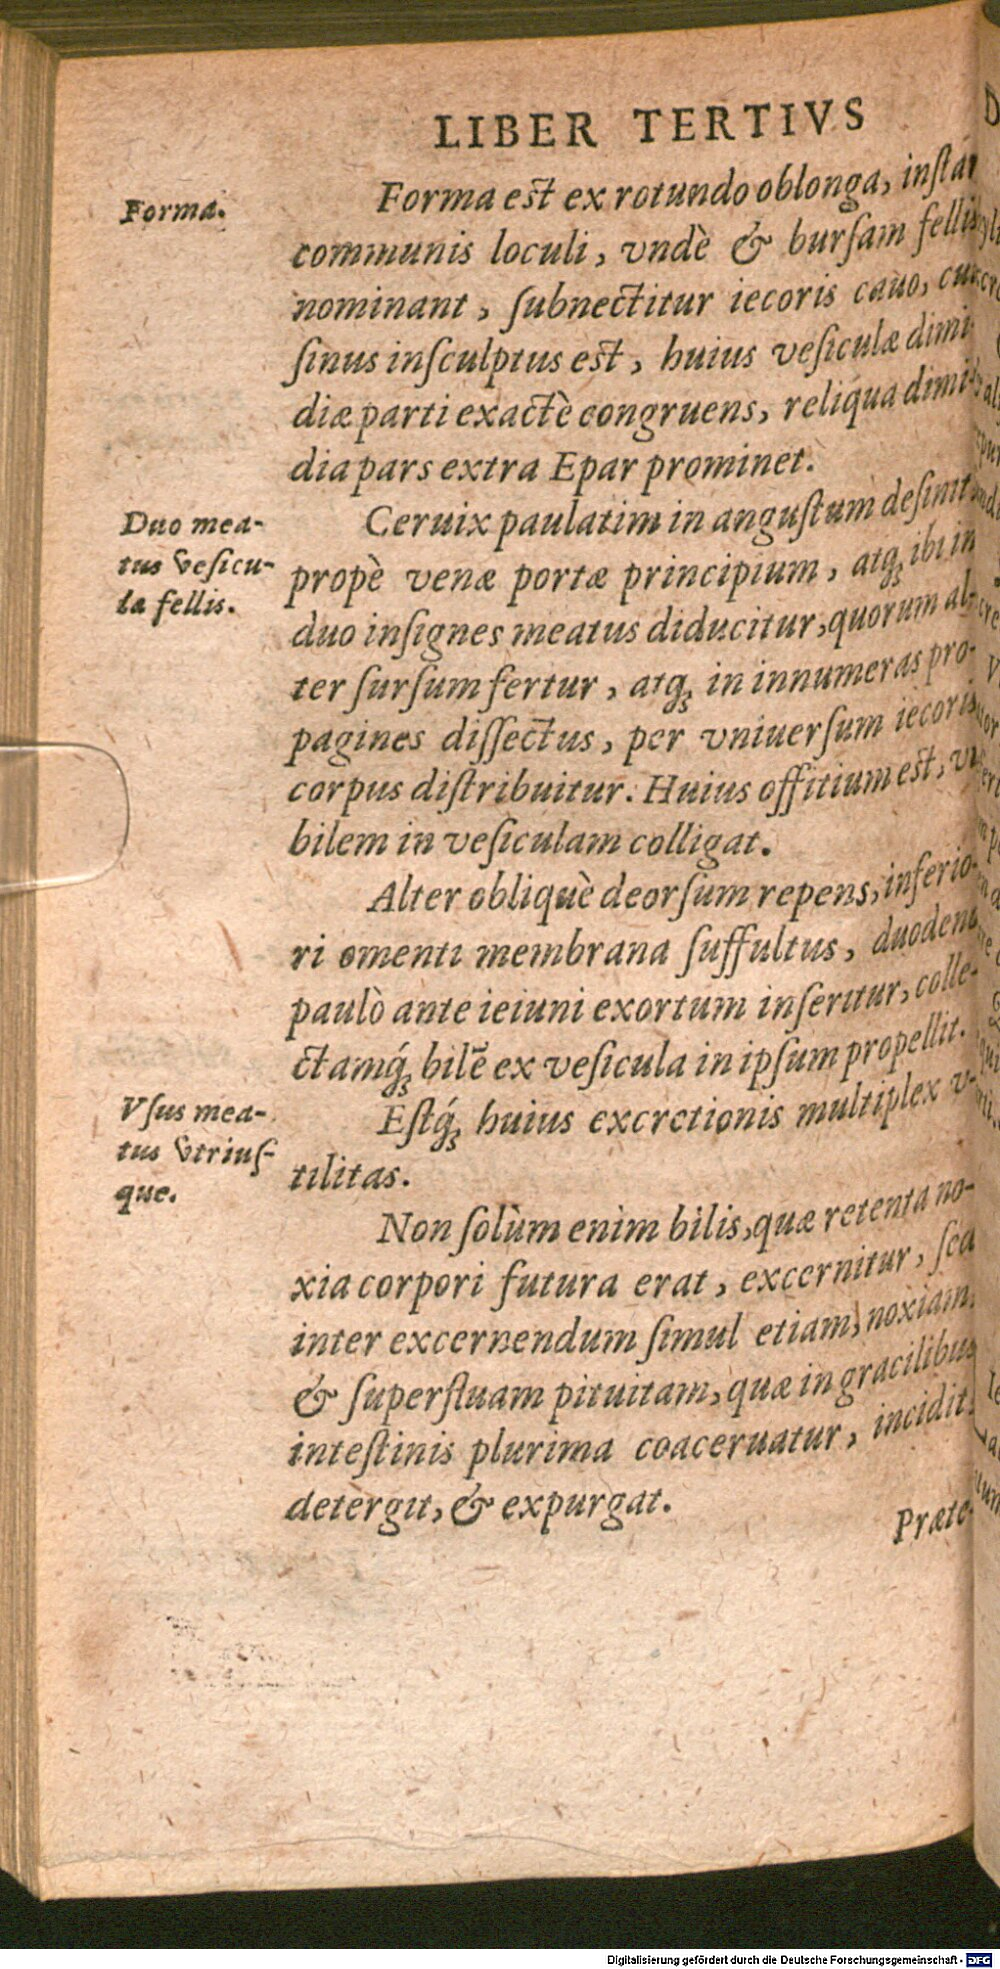 LIBER TERTIVS
Forma.
Forma est ex rotundo oblonga, instar
communis loculi, vndè & bursam fellis
nominant, subnectitur iecoris cauo, cui
sinus insculptus est, huius vesiculæ dimi-
diæ parti exactè congruens, reliqua dimi-
dia pars extra Epar prominet.
Duo mea-
tus vesicu-
la fellis.
Ceruix paulatim in angustum desinit
propè venæ portæ principium, atq; ibi in
duo insignes meatus diducitur, quorum al-
ter sursum fertur, atq; in innumeras pro-
pagines dissectus, per vniuersum iecoris
corpus distribuitur. Huius offitium est, vt
bilem in vesiculam colligat.
Alter obliquè deorsum repens, inferio-
ri omenti membrana suffultus, duodeno
paulò ante ieiuni exortum inseritur, colle-
ctamq́; bilē ex vesicula in ipsum propellit.
Vsus mea-
tus vtrius-
que.
Estq́; huius excretionis multiplex v-
tilitas.
Non solùm enim bilis, quæ retenta no-
xia corpori futura erat, excernitur, sed
inter excernendum simul etiam, noxiam,
& superfluam pituitam, quæ in gracilibus
intestinis plurima coaceruatur, incidit,
detergit, & expurgat.
Præte-
Digitalisierung gefördert durch die Deutsche Forschungsgemeinschaft - DFG